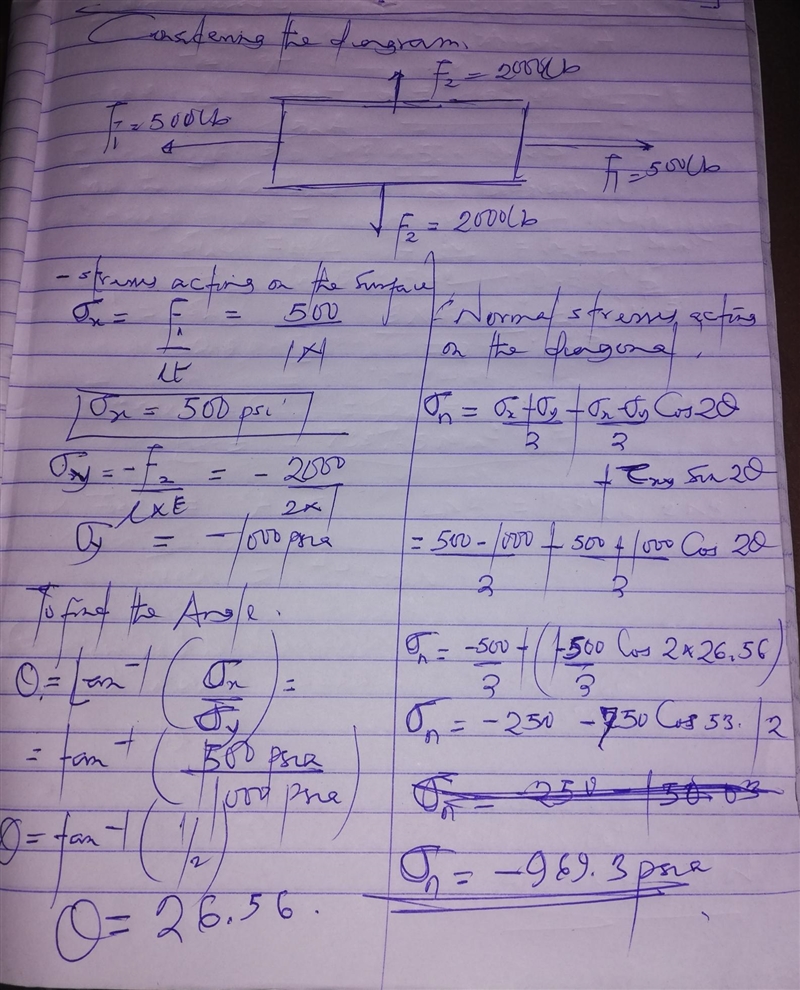 Considering the diagram.
F₂ = 2000lb
F₁ = 500lb
F₁ = 500lb
F₂ = 2000lb
- stresses acting on the surface
σx = F₁/lt = 500/1×1
σx = 500 psi
σxy = -F₂/l×t = - 2000/2×1
σy = -1000 psia
To find the Angle.
θ = tan⁻¹ (σx/σy) =
= tan⁻¹ (500 psia/1000 psia)
θ = tan⁻¹ (1/2)
θ = 26.56.
- Normal stresses acting
on the diagonal.
σn = σx+σy/2 + σx-σy/2 Cos 2θ
+ τxy Sin 2θ
= 500-1000/2 + 500+1000/2 Cos 2θ
σn = -500/2 + (-1500/2 Cos 2×26.56)
σn = -250 - 750 Cos 53.12
σn = -969.3 psia